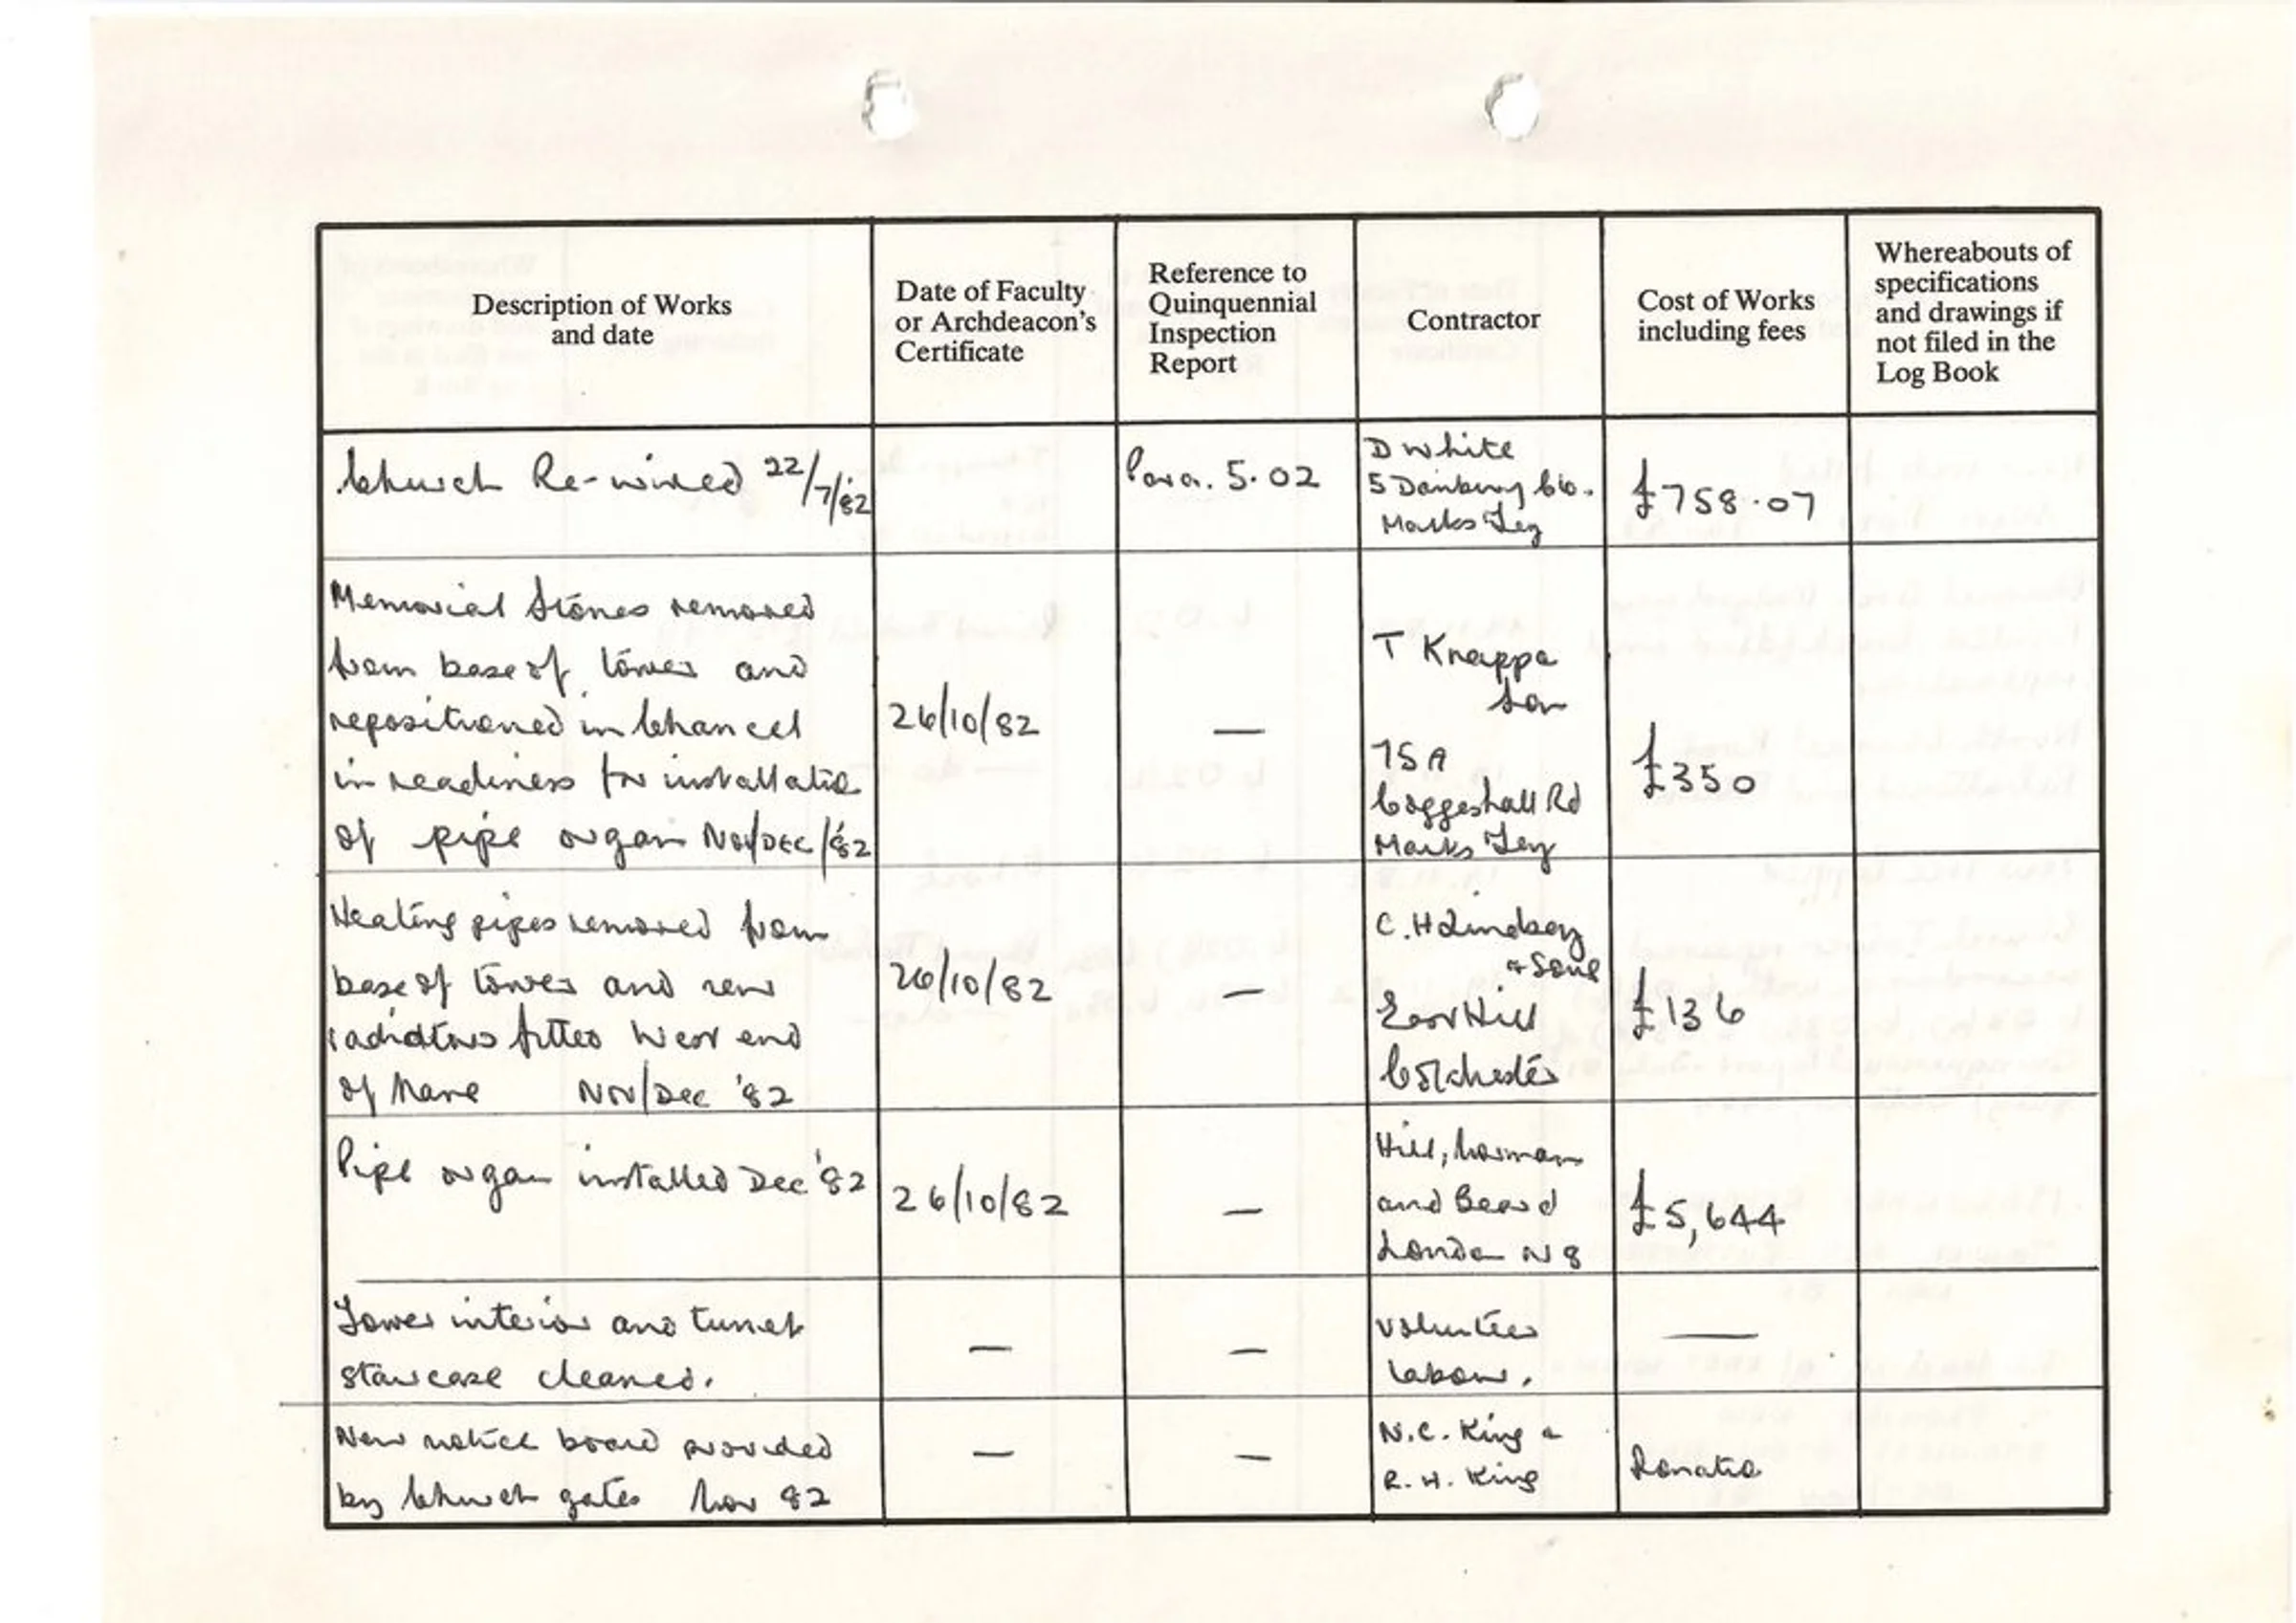 Description of Works
and date
Date of Faculty
or Archdeacon's
Certificate
Reference to
Quinquennial
Inspection
Report
Contractor
Cost of Works
including fees
Whereabouts of
specifications
and drawings if
not filed in the
Log Book
Church Re-wired 22/7/82
Para. 5.02
D White
5 Danbury Clo.
Marks Tey
£758.07
Memorial Stones removed
from base of tower and
repositioned in Chancel
in readiness for installatio
of pipe organ Nov/Dec/'82
26/10/82
—
T Knapp &
Son
75A
Coggeshall Rd
Marks Tey
£350
Heating pipes removed from
base of tower and new
radiators fitted West end
of Nave Nov/Dec '82
26/10/82
—
C. H Lindsey
& Sons
East Hill
Colchester
£136
Pipe organ installed Dec '82
26/10/82
—
Hill, Norman
and Beard
London N8
£5,644
Tower interior and turret
staircase cleaned.
—
—
Volunteer
labour.
—
New notice board provided
by Church gates Nov 82
—
—
N.C. King &
R. H. King
Donatio